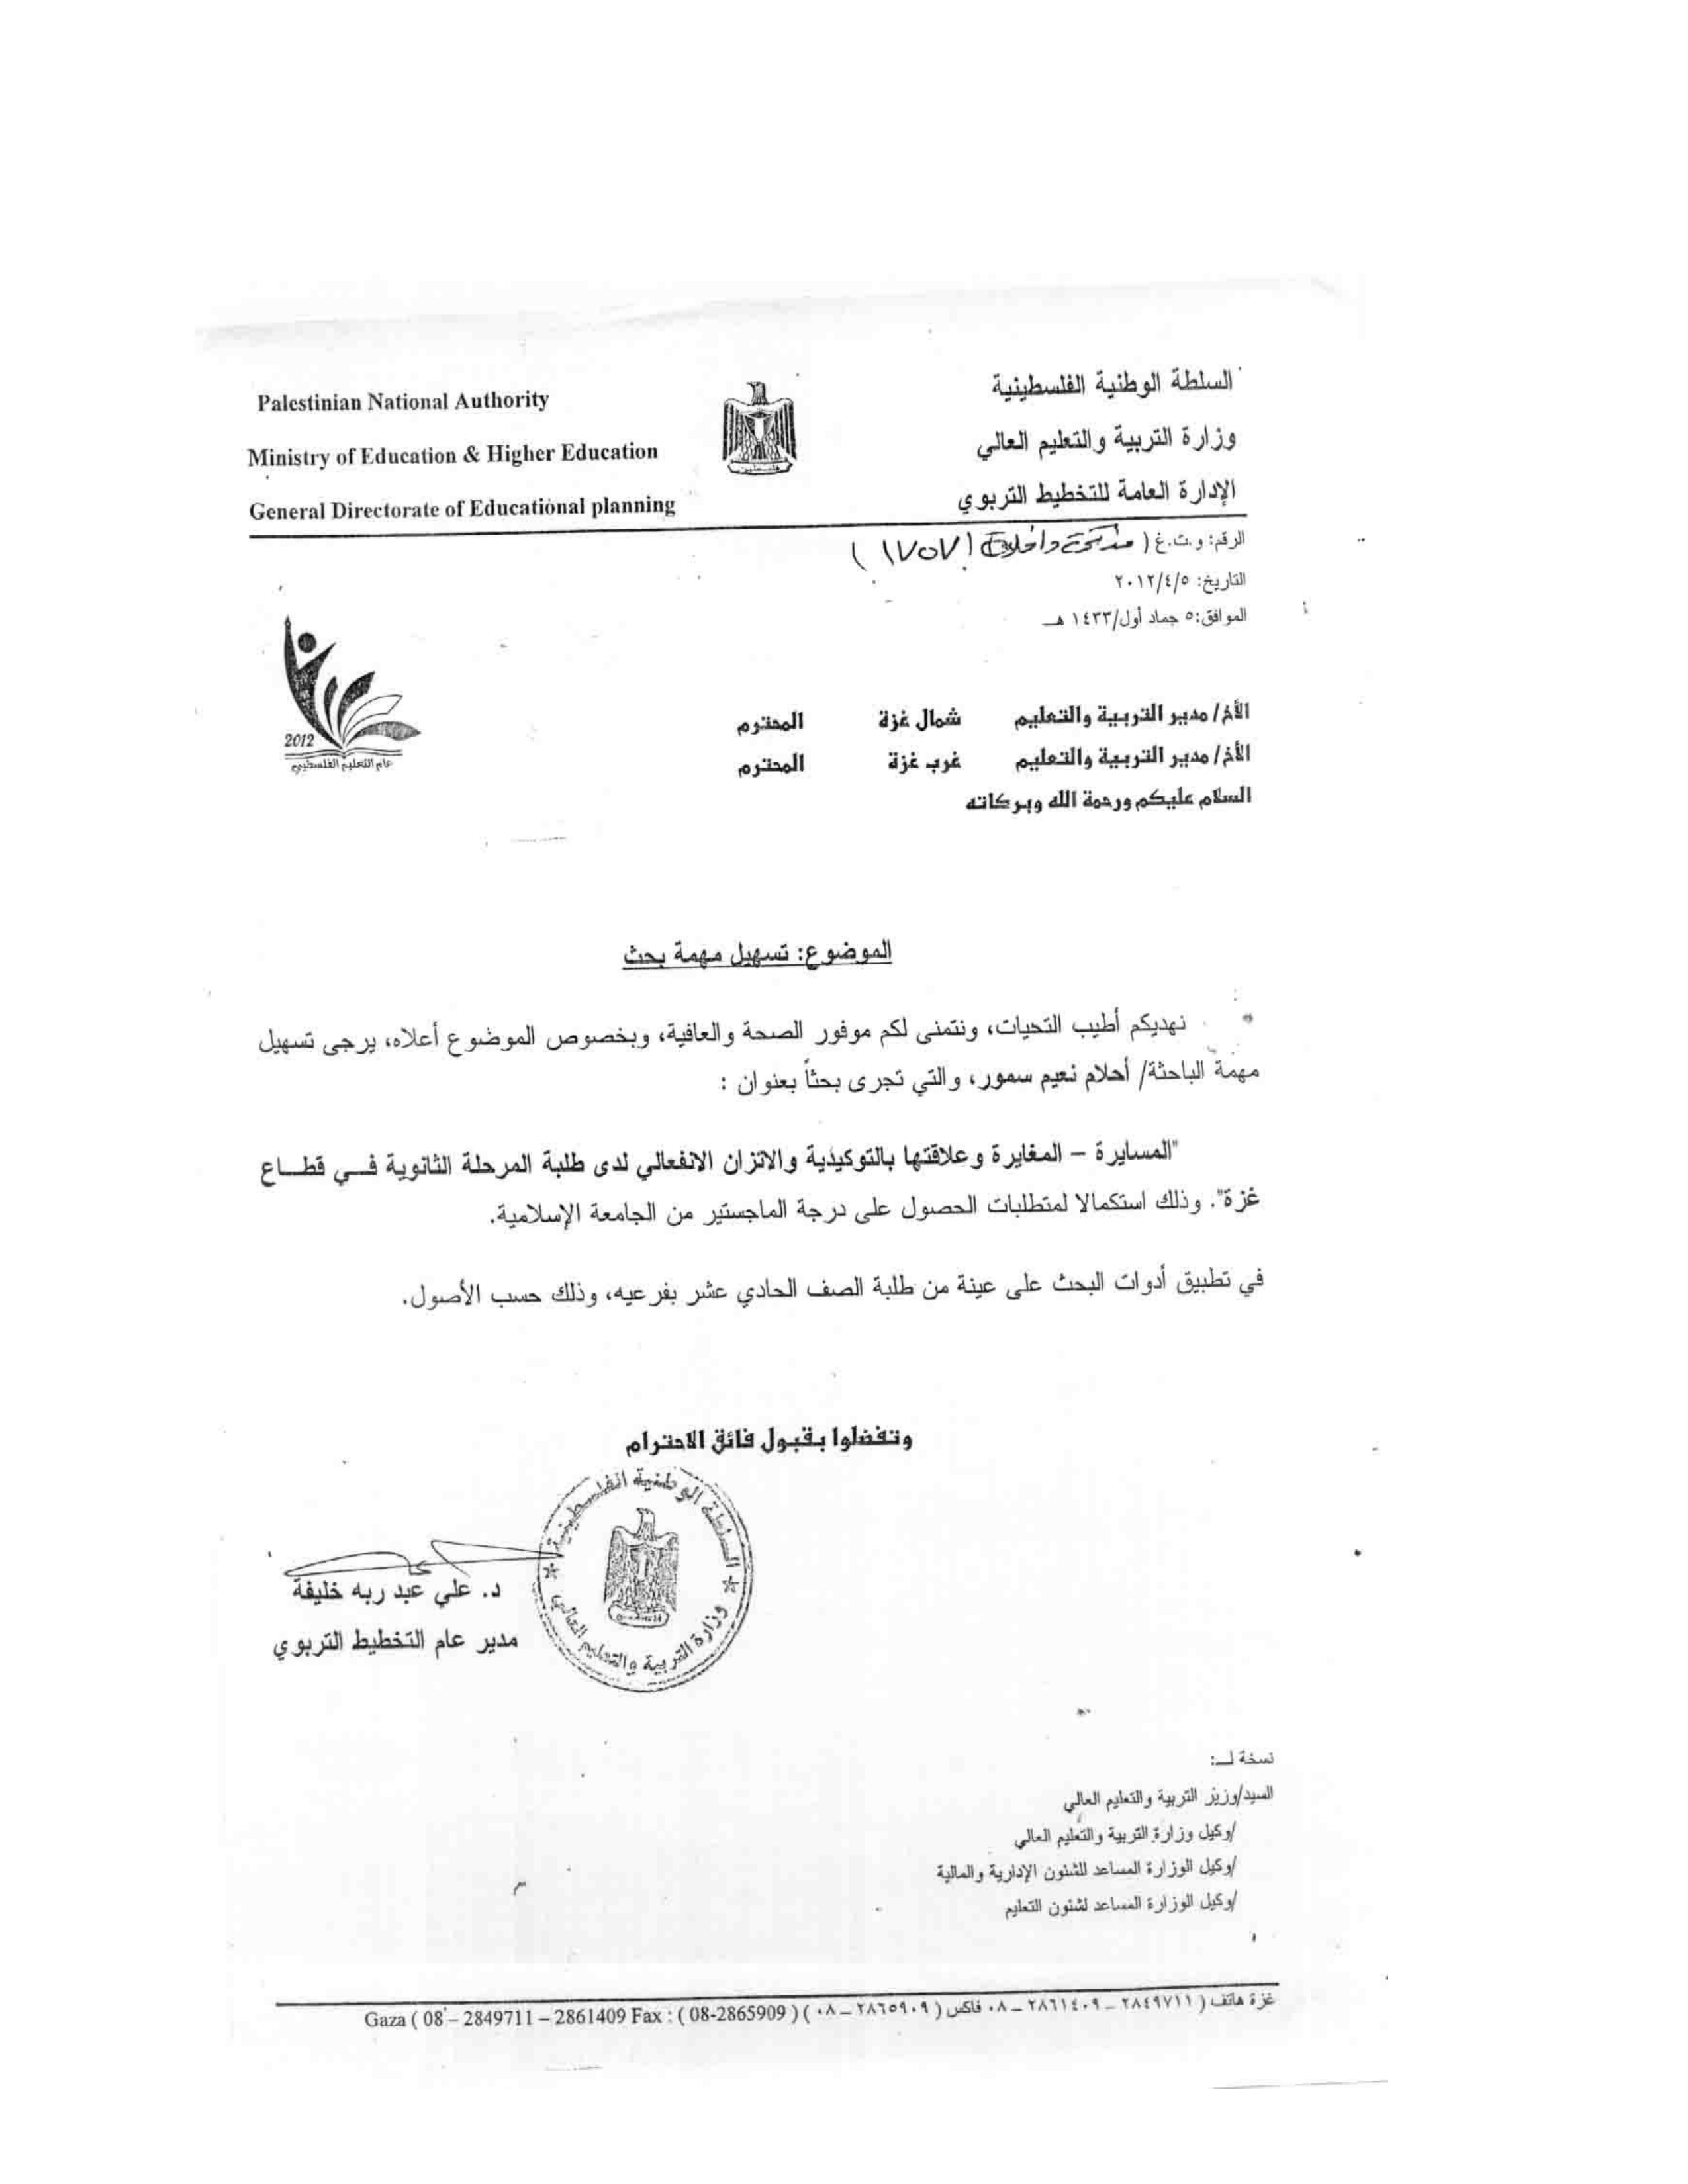 السلطة الوطنية الفلسطينية
وزارة التربية والتعليم العالي
الإدارة العامة للتخطيط التربوي
Palestinian National Authority
Ministry of Education & Higher Education
General Directorate of Educational planning
الرقم: و.ت.غ ( مذكرة داخلية ( ١٧٥٧ )
التاريخ: ٢٠١٢/٤/٥
الموافق: ٥ جماد أول/١٤٣٣ هـ
2012
عام التعليم الفلسطيني
الأخ/ مدير التربية والتعليم شمال غزة المحترم
الأخ/ مدير التربية والتعليم غرب غزة المحترم
السلام عليكم ورحمة الله وبركاته
الموضوع: تسهيل مهمة بحث
نهديكم أطيب التحيات، ونتمنى لكم موفور الصحة والعافية، وبخصوص الموضوع أعلاه، يرجى تسهيل
مهمة الباحثة/ أحلام نعيم سمور، والتي تجرى بحثاً بعنوان :
"المسايرة – المغايرة وعلاقتها بالتوكيدية والاتزان الانفعالي لدى طلبة المرحلة الثانوية فـــي قطـــاع
غزة". وذلك استكمالا لمتطلبات الحصول على درجة الماجستير من الجامعة الإسلامية.
في تطبيق أدوات البحث على عينة من طلبة الصف الحادي عشر بفرعيه، وذلك حسب الأصول.
وتفضلوا بقبول فائق الاحترام
السلطة الوطنية الفلسطينية
وزارة التربية والتعليم العالي
د. علي عبد ربه خليفة
مدير عام التخطيط التربوي
نسخة لــ:
السيد/وزير التربية والتعليم العالي
/وكيل وزارة التربية والتعليم العالي
/وكيل الوزارة المساعد للشئون الإدارية والمالية
/وكيل الوزارة المساعد لشئون التعليم
غزة هاتف ( ٢٨٤٩٧١١ – ٢٨٦١٤٠٩ – ٠٨ فاكس ( ٢٨٦٥٩٠٩ – ٠٨ ) Gaza ( 08 – 2849711 – 2861409 Fax : ( 08-2865909 )